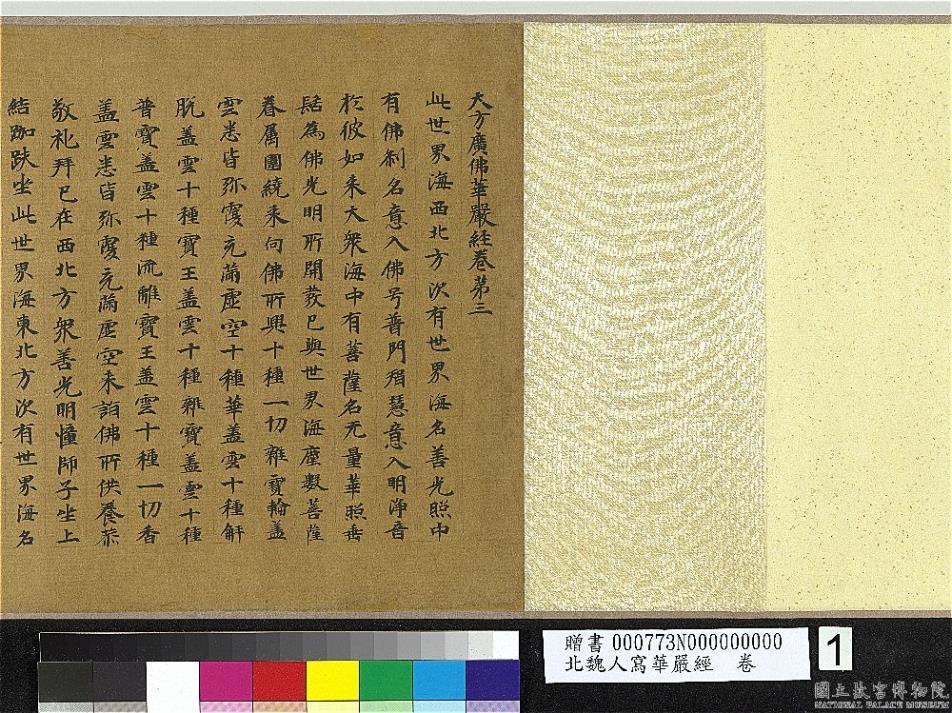 大方廣佛華嚴經卷第三
此世界海西北方次有世界海名善光照中
有佛刹名意入佛号普門智慧意入明淨音
於彼如来大衆海中有菩薩名无量華照垂
髻為佛光明所開發已與世界海塵數菩薩
眷屬圍繞来向佛所興十種一切雜寶輪盖
雲悉皆弥覆充滿虛空十種華盖雲十種解
脱盖雲十種寶王盖雲十種雜寶盖雲十種
普寶盖雲十種流離寶王盖雲十種一切香
盖雲悉皆弥覆充滿虛空来詣佛所供養恭
敬礼拜已在西北方衆善光明幢師子坐上
結跏趺坐此世界海東北方次有世界海名
贈書 000773N000000000
北魏人寫華嚴經 卷
1
國立故宮博物院
NATIONAL PALACE MUSEUM